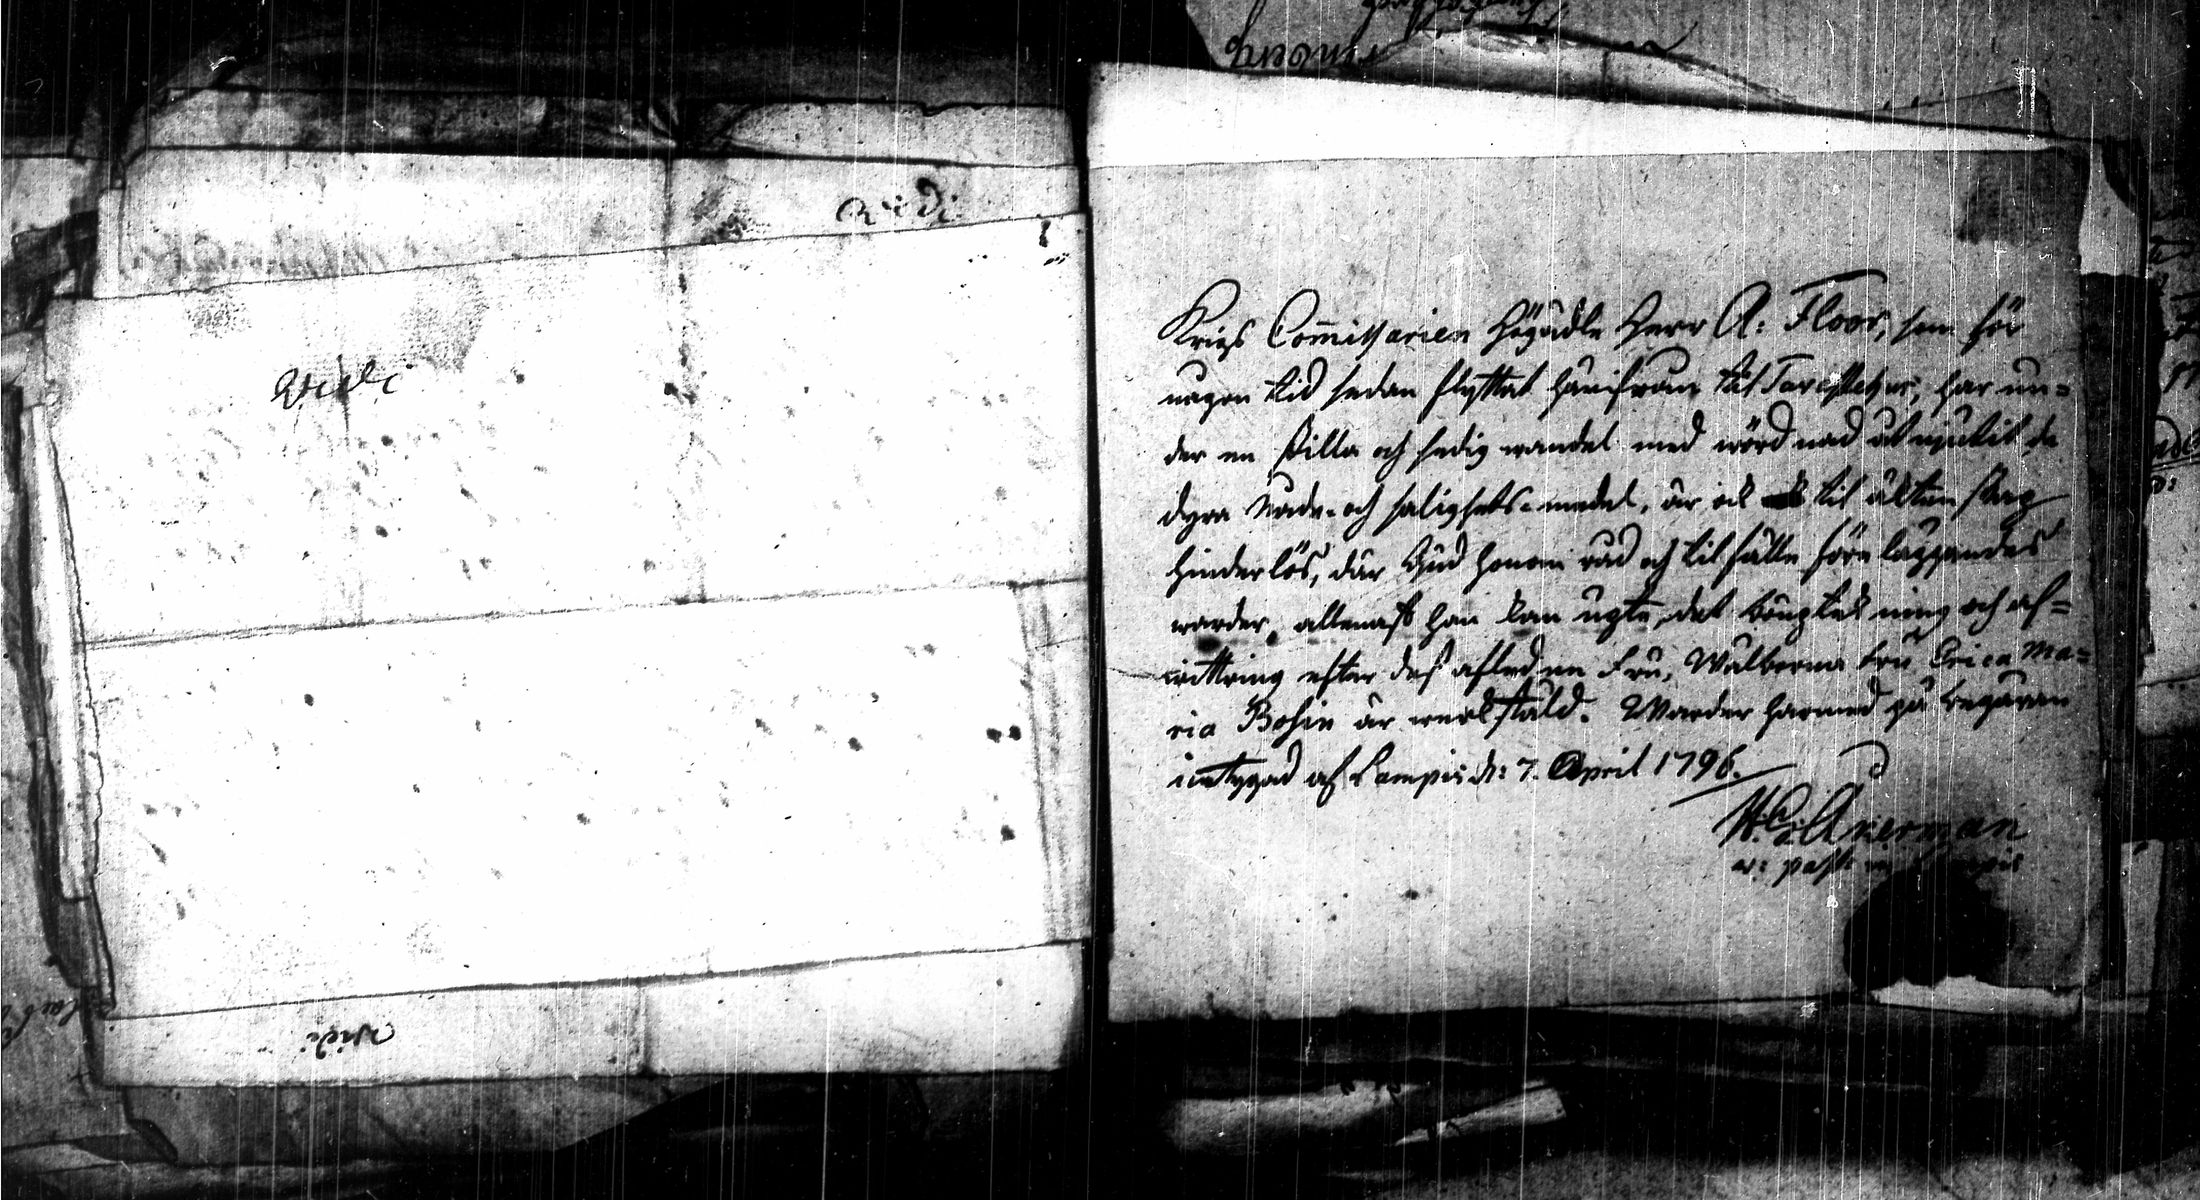 vidi
Vidi
vidi
Krigs Commissarien Högädle Herr A: Floor, som för
någon tid sedan flyttat härifrån till Tavastehus, har un=
der en stilla och sedig wandel med wördnad utnjutit de
dyra Nåde- och salighets-medel, är ock til äkten skap
hinderlös, där Gud honom råd och tilfälle före läggandes
warder, allenast han kan ugte, det Bouptekning och af=
wittring efter dess afledne Fru, Wälborna Fru Erica Ma=
ria Bosin är werkstäld. Warder härmed på begäran
intygad af Lampis d: 7. April 1796.
Akerman
v: past: